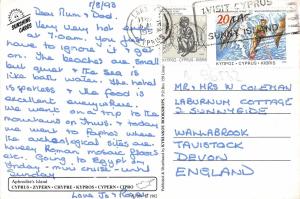 1/8/93
Dear Mum & Dad.
Very very hot even
at 7.00am. You just
have to ignore it &
go on. The beaches are small
but quiet & the sea is
like bath water & the hotel
is spotless & the food is
excellent everywhere.
we went on a trip to the
mountains on Thurs. & today
we went to Paphos where
the archeological sites are.
lovely Roman mosaic floors
etc. Going to Egypt on
Friday - mini cruise - until
Sunday
Love Jo & Roger
Aphrodite's Island
CYPRUS - ZYPERN - CHYPRE - KYPROS - CYPERN - CIPRO
VISIT CYPRUS
SUNNY ISLAND
ΚΥΠΡΟΣ - CYPRUS - KIBRIS
20c
ΚΥΠΡΟΣ CYPRUS KIBRIS
MR & MRS W COLEMAN
LABURNUM COTTAGE
2 SUNNYSIDE
WALLABROOK
TAVISTOCK
DEVON
ENGLAND